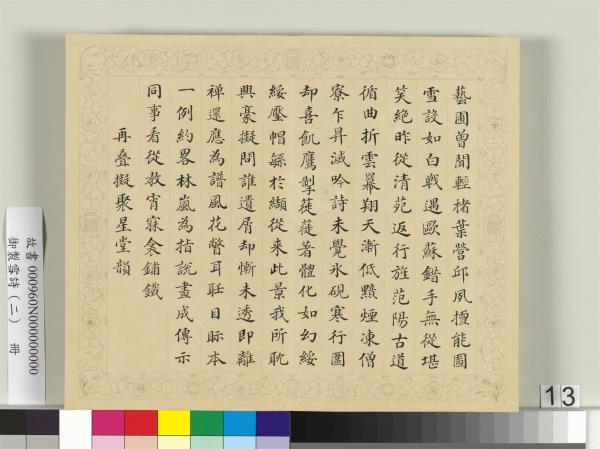 藝圃曾聞輕楮葉營邱夙擅能圖
雪設如白戰遇歐蘇鍇手無從堪
笑絶昨從清苑返行旌范陽古道
循曲折雲羃翔天漸低黯煙凍僧
寮乍昇滅吟詩未覺氷硯寒行圍
却喜飢鷹掣蓰蓰著體化如幻綏
綏壓帽緐於纈從來此景我所耽
興豪擬問誰遺屑却慚未透即離
禪還應為譜風花瞥耳駐目眎本
一例約畧林嵐為指說畫成傳示
同事看從教宵寐衾鋪鐵
再叠擬聚星堂韻
故書 000960N000000000
御製雪詩（二） 冊
13